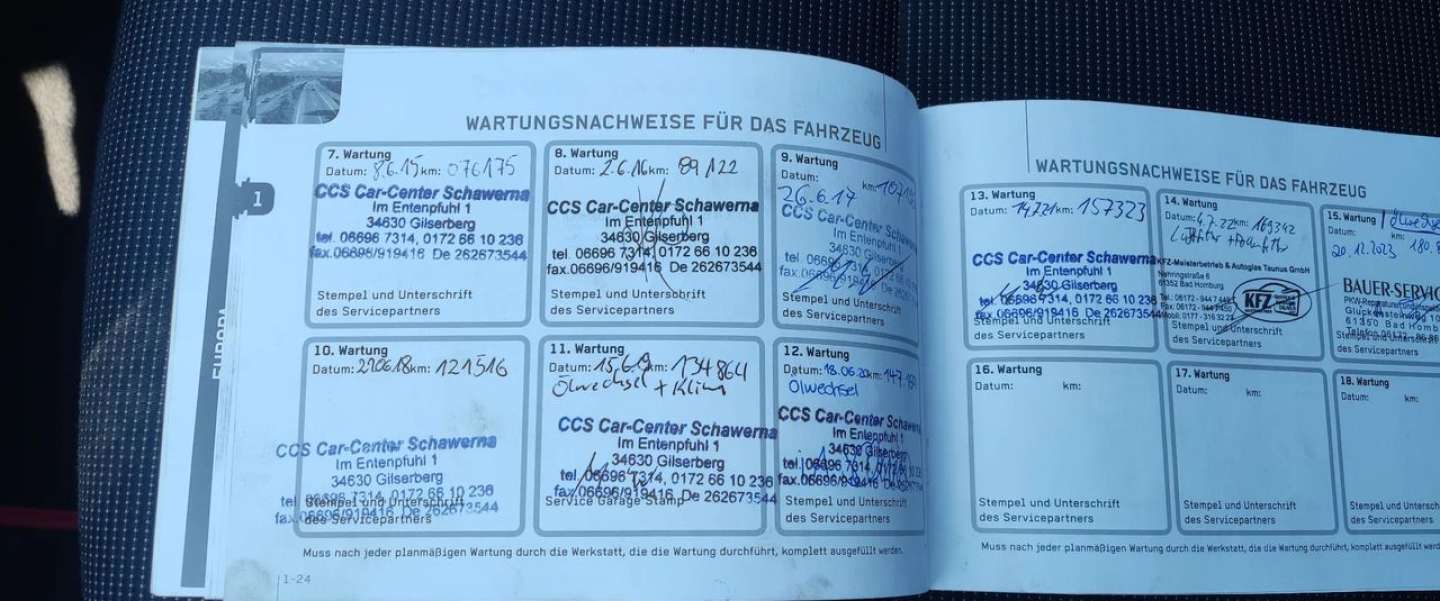 WARTUNGSNACHWEISE FÜR DAS FAHRZEUG
1
EUROPA
7. Wartung
Datum: 8.6.15 km: 076175
CCS Car-Center Schawerna
Im Entenpfuhl 1
34630 Gilserberg
tel. 06696 7314, 0172 66 10 236
fax.06696/919416 De 262673544
Stempel und Unterschrift
des Servicepartners
8. Wartung
Datum: 2.6.16 km: 89122
CCS Car-Center Schawerna
Im Entenpfuhl 1
34630 Gilserberg
tel. 06696 7314, 0172 66 10 236
fax.06696/919416 De 262673544
Stempel und Unterschrift
des Servicepartners
9. Wartung
Datum: km:
26.6.17
CCS Car-Center
Im Entenpfuhl 1
34630 Gilserberg
tel. 06696
fax.06696/919416 De
Stempel und Unterschrift
des Servicepartners
10. Wartung
Datum: km: 121516
CCS Car-Center Schawerna
Im Entenpfuhl 1
34630 Gilserberg
tel. 06696 7314, 0172 66 10 236
fax.06696/919416 De 262673544
Stempel und Unterschrift
des Servicepartners
11. Wartung
Datum: km: 134864
Ölwechsel + Klima
CCS Car-Center Schawerna
Im Entenpfuhl 1
34630 Gilserberg
tel. 06696 7314, 0172 66 10 236
fax.06696/919416 De 262673544
Service Garage Stamp
12. Wartung
Datum: 18.06.20 km:
Ölwechsel
CCS Car-Center Schawerna
Im Entenpfuhl 1
34630 Gilserberg
tel. 06696 7314,
fax.06696/919416 De
Stempel und Unterschrift
des Servicepartners
Muss nach jeder planmäßigen Wartung durch die Werkstatt, die die Wartung durchführt, komplett ausgefüllt werden.
1-24
WARTUNGSNACHWEISE FÜR DAS FAHRZEUG
13. Wartung
Datum: km: 157323
CCS Car-Center Schawerna
Im Entenpfuhl 1
34630 Gilserberg
tel. 06696 7314, 0172 66 10 236
fax.06696/919416 De 262673544
Stempel und Unterschrift
des Servicepartners
14. Wartung
Datum: 4.7.22 km: 169342
KFZ-Meisterbetrieb & Autoglas Taunus GmbH
61352 Bad Homburg
KFZ
Stempel und Unterschrift
des Servicepartners
15. Wartung
Datum: km:
20.12.2023
BAUER-SERVIC
61350 Bad Homb
Stempel und Unterschrift
des Servicepartners
16. Wartung
Datum: km:
Stempel und Unterschrift
des Servicepartners
17. Wartung
Datum: km:
Stempel und Unterschrift
des Servicepartners
18. Wartung
Datum: km:
Stempel und Unterschrift
des Servicepartners
Muss nach jeder planmäßigen Wartung durch die Werkstatt, die die Wartung durchführt, komplett ausgefüllt